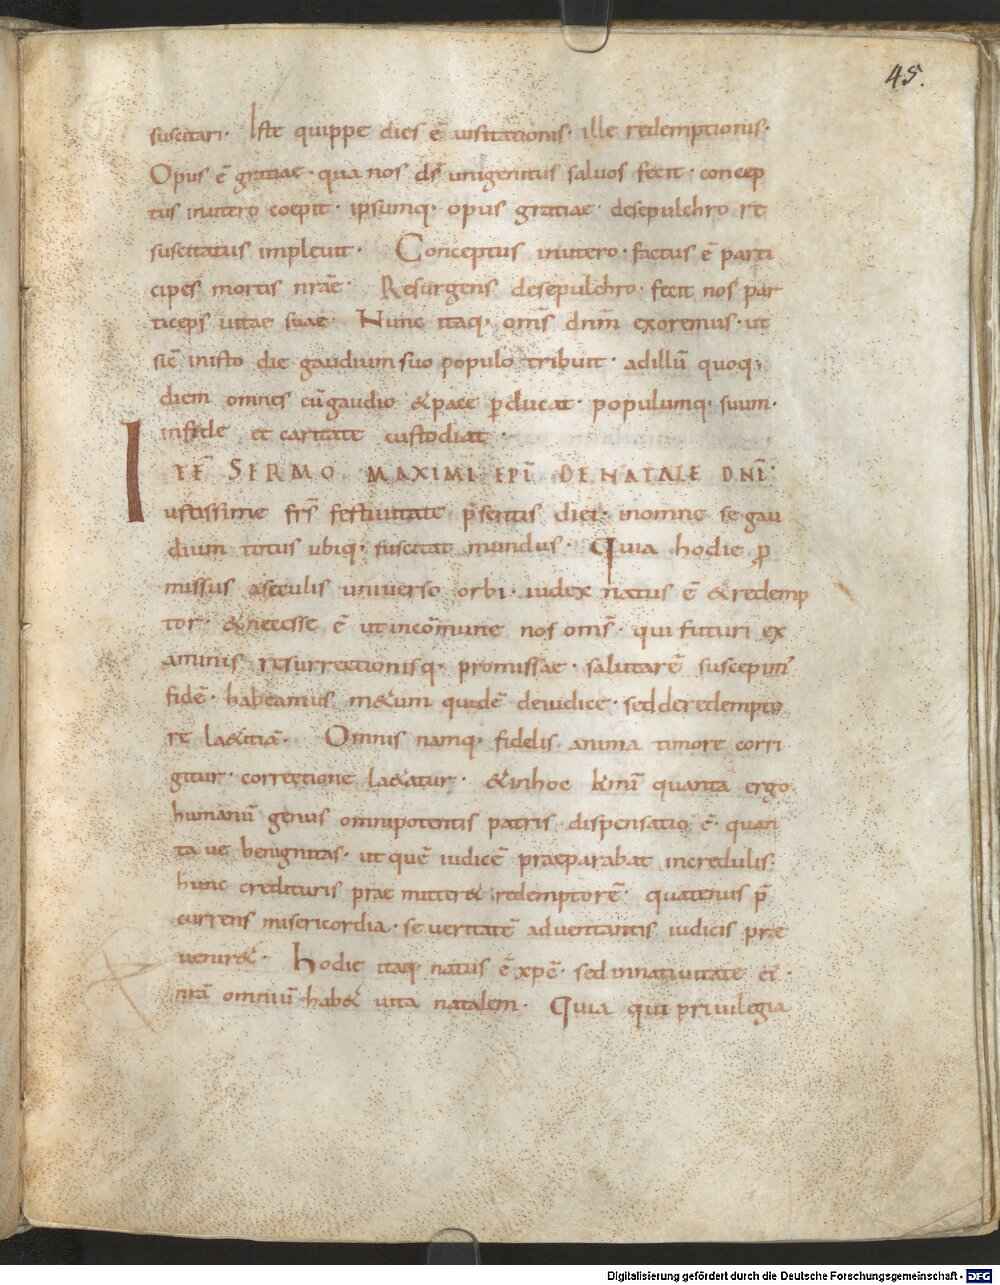 45.
suscitari· Iste quippe dies ē uisitationis· ille redemptionis·
Opus ē gratiae· qua nos d̄s unigenitus saluos fecit· concep
tus inutero coepit· ipsumq· opus gratiae· desepulchro re
suscitatus impleuit· Conceptus inutero· factus ē parti
cipes mortis nrāe· Resurgens desepulchro· fecit nos par
ticeps uitae suae· Nunc itaq· om̄s dn̄m exoremus· ut
sic̄ inisto die gaudium suo populo tribuit· adillū quoq;
diem omnes cū gaudio & pace p̱ducat· populumq· suum·
infide et caritate custodiat·
ITĒ SERMO MAXIMI EPĪ DE NATALE DN̄I·
Iustissime fr̄s festiuitate p̄sentis diei· inomne se gau
dium totus ubiq· suscitat mundus· Quia hodie ꝓ
missus aseculis uniuerso orbi· iudex natus ē & redemp
tor· & necesse ē ut incōmune nos om̄s· qui futuri ex
aminis resurrectionisq· promissae· salutarē suscepim̄
fidē· habeamus m&um quidē deiudice· sed deredempto
re la&itiā· Omnis namq· fidelis anima timore corri
gitur· correctione la&atur· & inhoc k̄mī quanta ergo
humanū genus omnipotentis patris dispensatio ē· quan
ta ue benignitas· ut quē iudicē praeparabat incredulis·
hunc credituris prae mitter& redemptorē· quatenus p̄
currens misericordia· se ueritatē aduentantis iudicis prae
uenir&· Hodie itaq natus ē xp̄c· sed innatiuitate ei·
nr̄ā omniū hab& uita natalem· Quia qui priuilegia
Digitalisierung gefördert durch die Deutsche Forschungsgemeinschaft - DFG